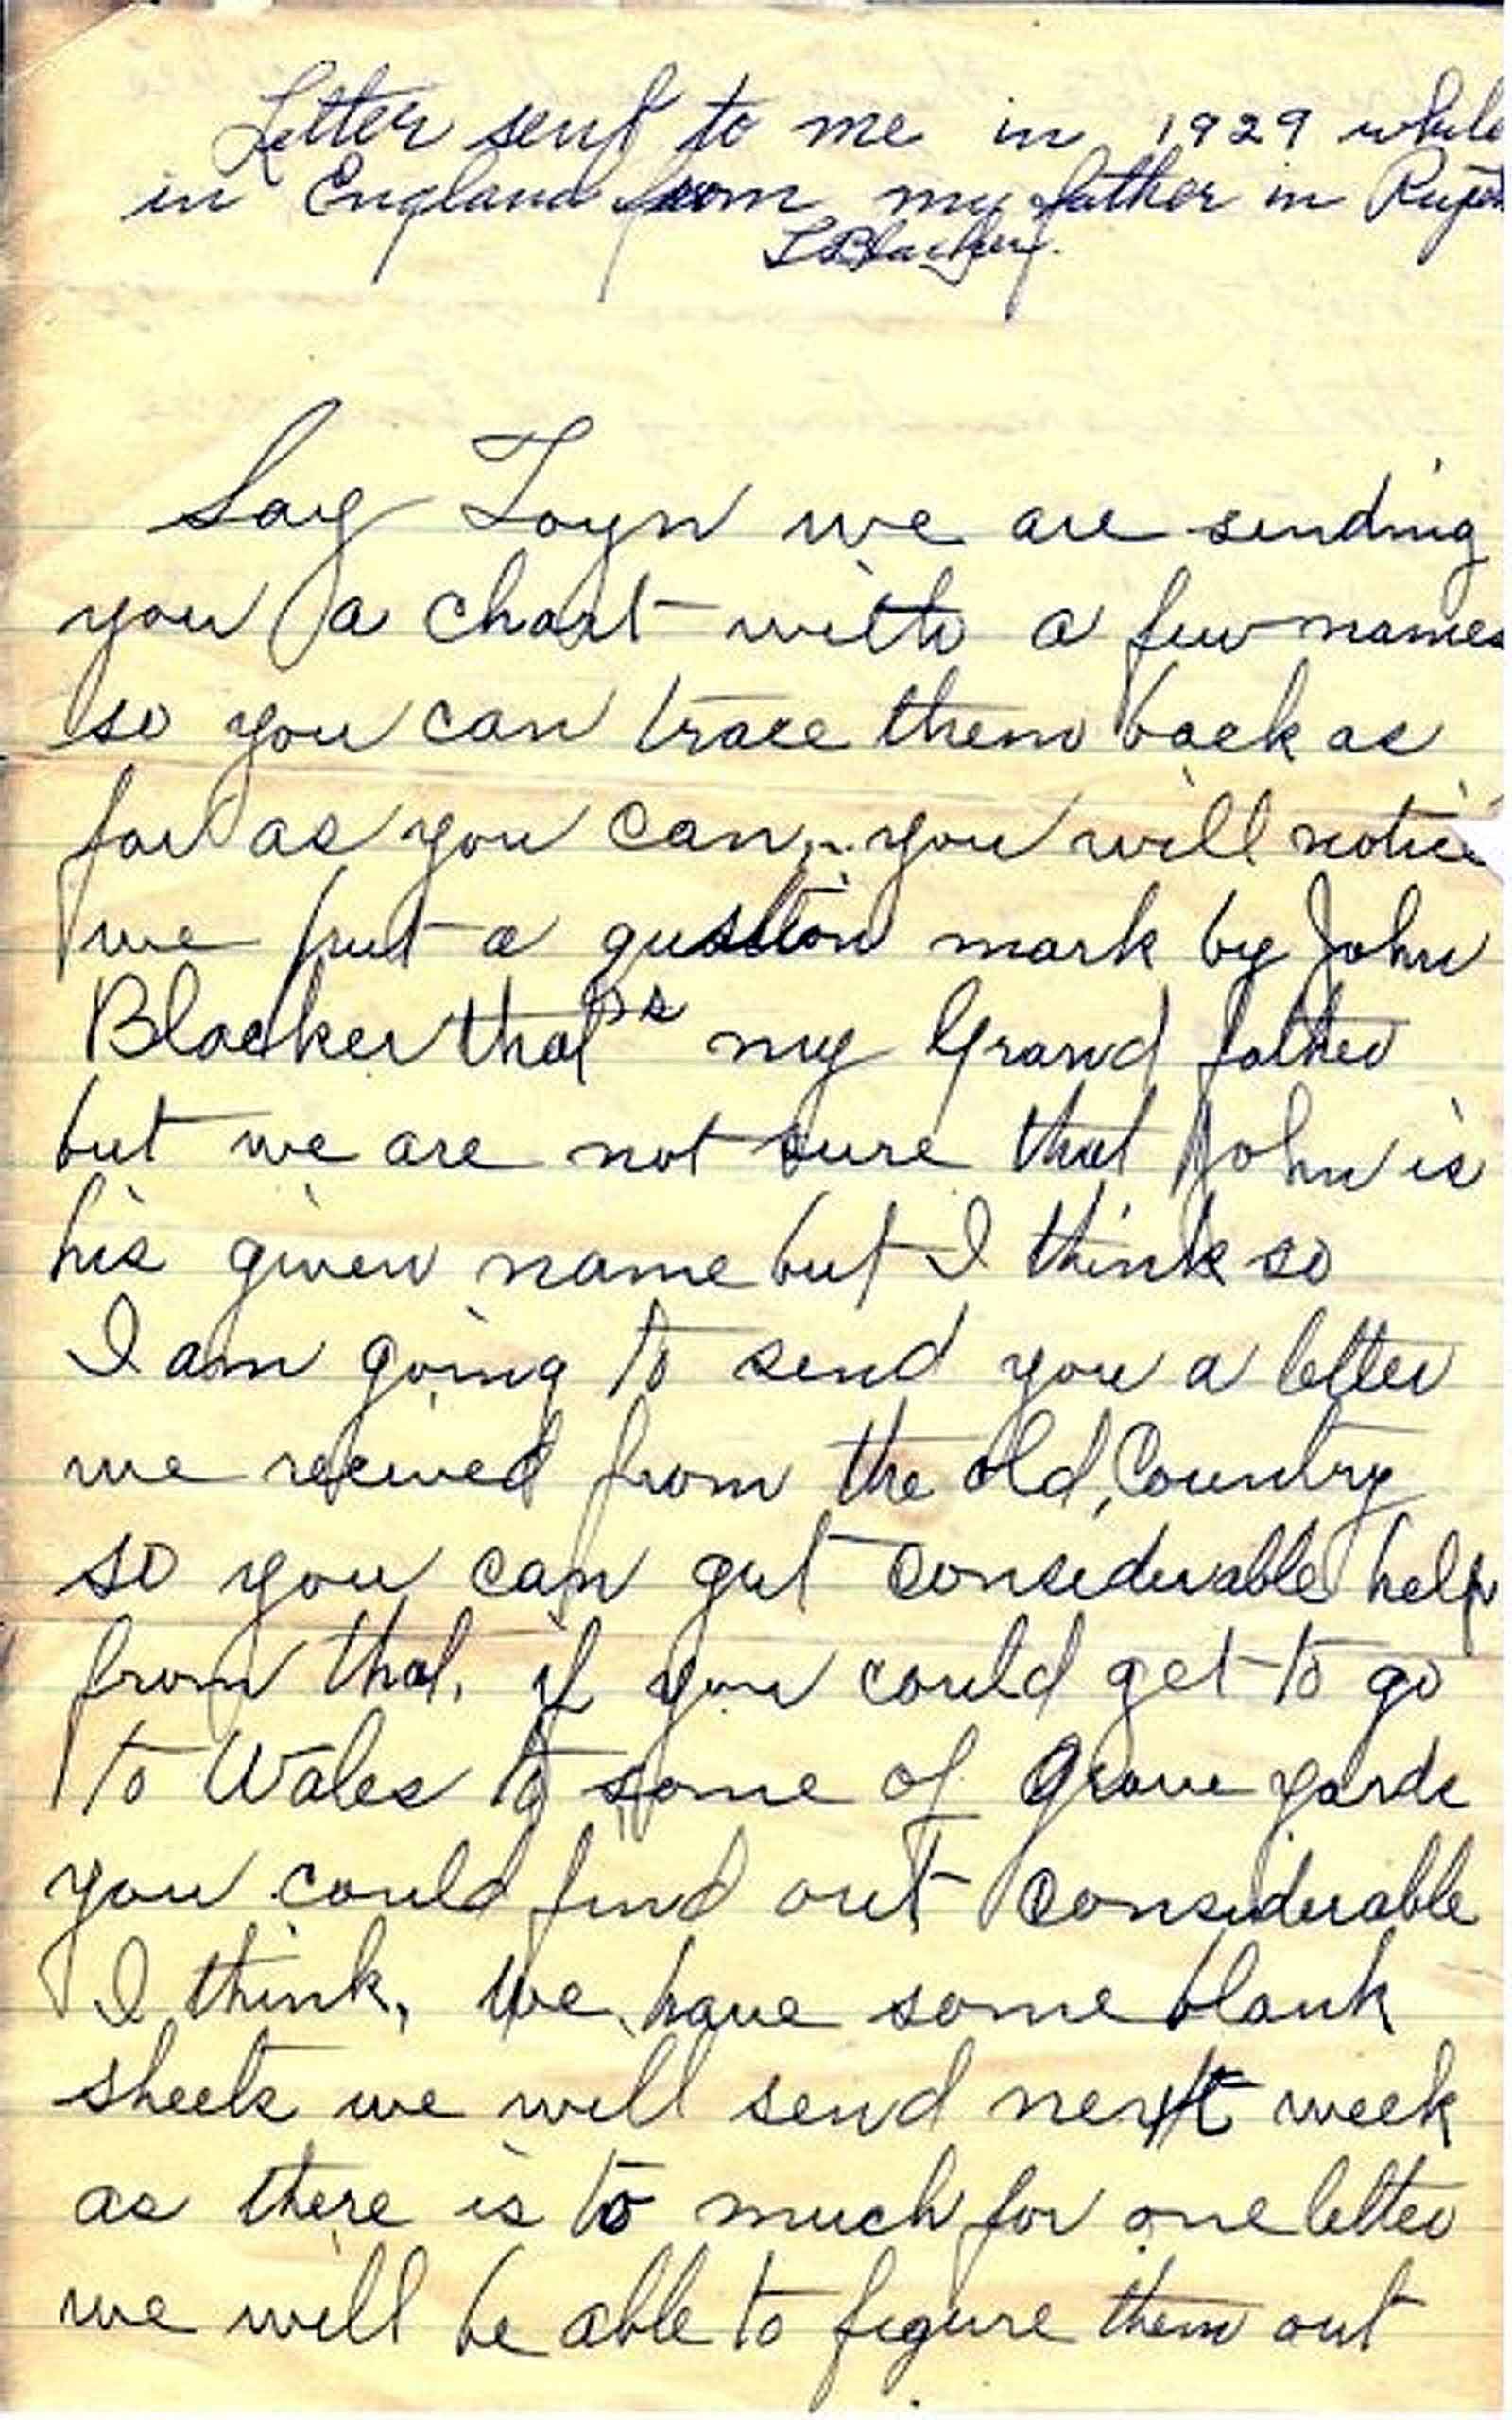 Letter sent to me in 1929 while
in England from my father in
L Blacker.
Say Loyn we are sending
you a chart with a few names
so you can trace them back as
far as you can, you will notice
we put a qustion mark by John
Blacker that's my Grand father
but we are not sure that John is
his given name but I think so
I am going to send you a letter
we recived from the old, Country
so you can get considerable help
from that. if you could get to go
to Wales to some of Grave yards
you could find out considerable
I think, We have some blank
sheets we will send next week
as there is to much for one letter
we will be able to figure them out